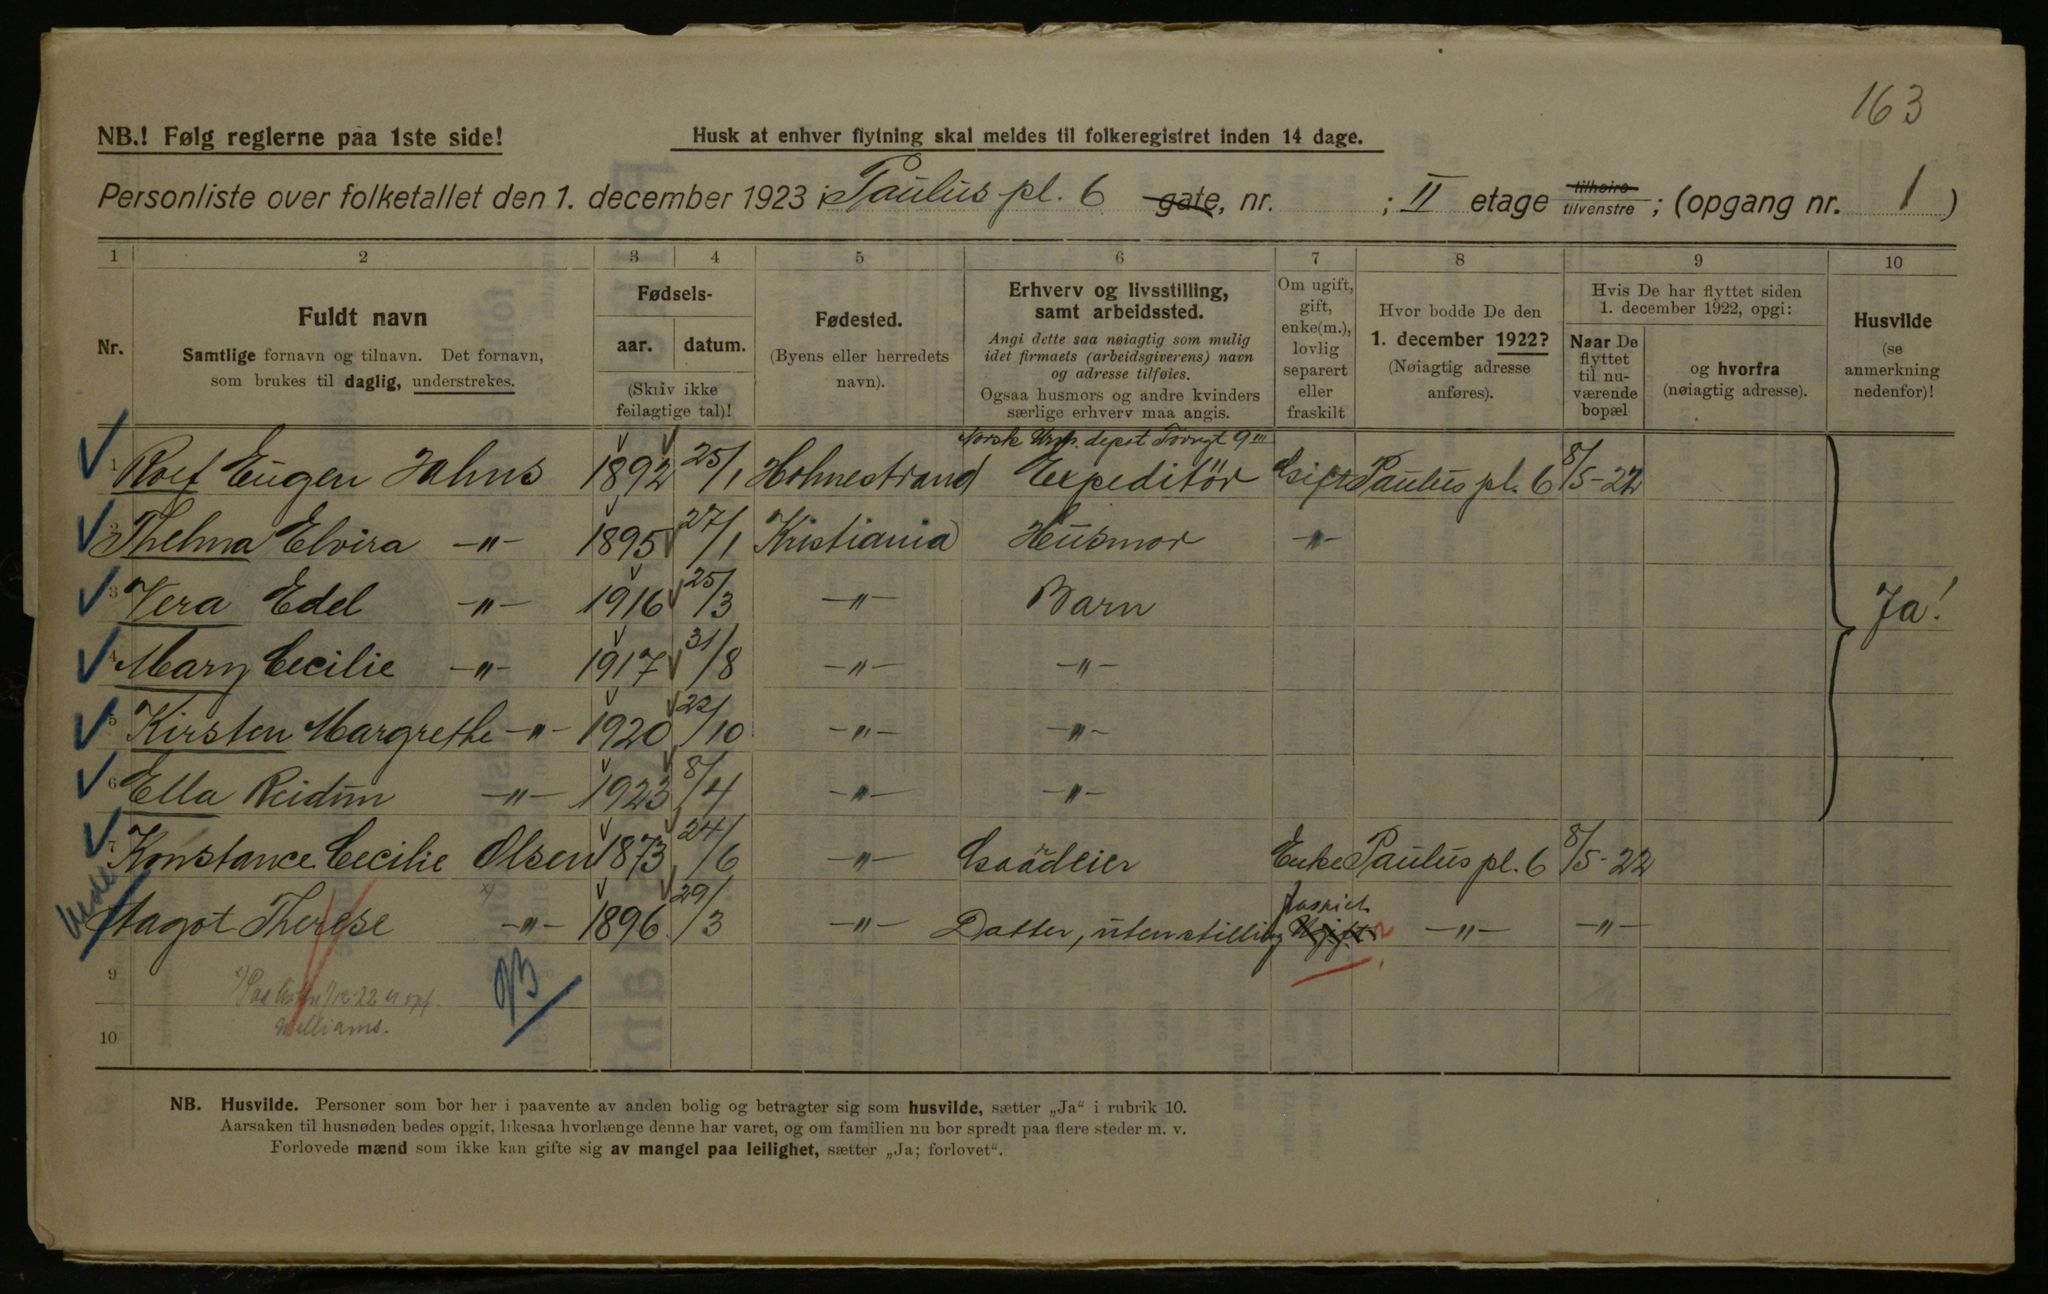 163
NB.! Følg reglerne paa 1ste side!
Husk at enhver flytning skal meldes til folkeregistret inden 14 dage.
Personliste over folketallet den 1. december 1923 i Paulus pl. 6 gate, nr. ; II etage tilhøire tilvenstre ; (opgang nr. 1 )
1 2 3 4 5 6 7 8 9 10
Nr.
Fuldt navn
Samtlige fornavn og tilnavn. Det fornavn,
som brukes til daglig, understrekes.
Fødsels-
aar. datum.
(Skriv ikke
feilagtige tal)!
Fødested.
(Byens eller herredets
navn).
Erhverv og livsstilling,
samt arbeidssted.
Angi dette saa nøiagtig som mulig
idet firmaets (arbeidsgiverens) navn
og adresse tilføies.
Ogsaa husmors og andre kvinders
særlige erhverv maa angis.
Om ugift,
gift,
enke(m.),
lovlig
separert
eller
fraskilt
Hvor bodde De den
1. december 1922?
(Nøiagtig adresse
anføres).
Hvis De har flyttet siden
1. december 1922, opgi:
Naar De
flyttet
til nu-
værende
bopæl
og hvorfra
(nøiagtig adresse).
Husvilde
(se
anmerkning
nedenfor)!
Norsk depot Torvgt 9
1 Rolf Eugen Jahns 1892 25/1 Holmestrand Expeditör Gift Paulus pl. 6 8/5-22
2 Thelma Elvira -"- 1895 27/1 Kristiania Husmor -"-
3 Vera Edel -"- 1916 25/3 -"- Barn
Ja!
4 Mary Cecilie -"- 1917 31/8 -"- -"-
5 Kirsten Margrethe -"- 1920 22/10 -"- -"-
6 Ella Reidun -"- 1923 8/4 -"- -"-
7 Konstance Cecilie Olsen 1873 24/6 -"- Gaardeier Enke Paulus pl. 6 8/5-22
Aagot Therese x) -"- 1896 29/3 -"- Datter, uten stilling Ugift ? -"- -"-
9
x) Paa 22 er opf.
Williams.
10
NB. Husvilde. Personer som bor her i paavente av anden bolig og betragter sig som husvilde, sætter „Ja“ i rubrik 10.
Aarsaken til husnøden bedes opgit, likesaa hvorlænge denne har varet, og om familien nu bor spredt paa flere steder m. v.
Forlovede mænd som ikke kan gifte sig av mangel paa leilighet, sætter „Ja; forlovet“.